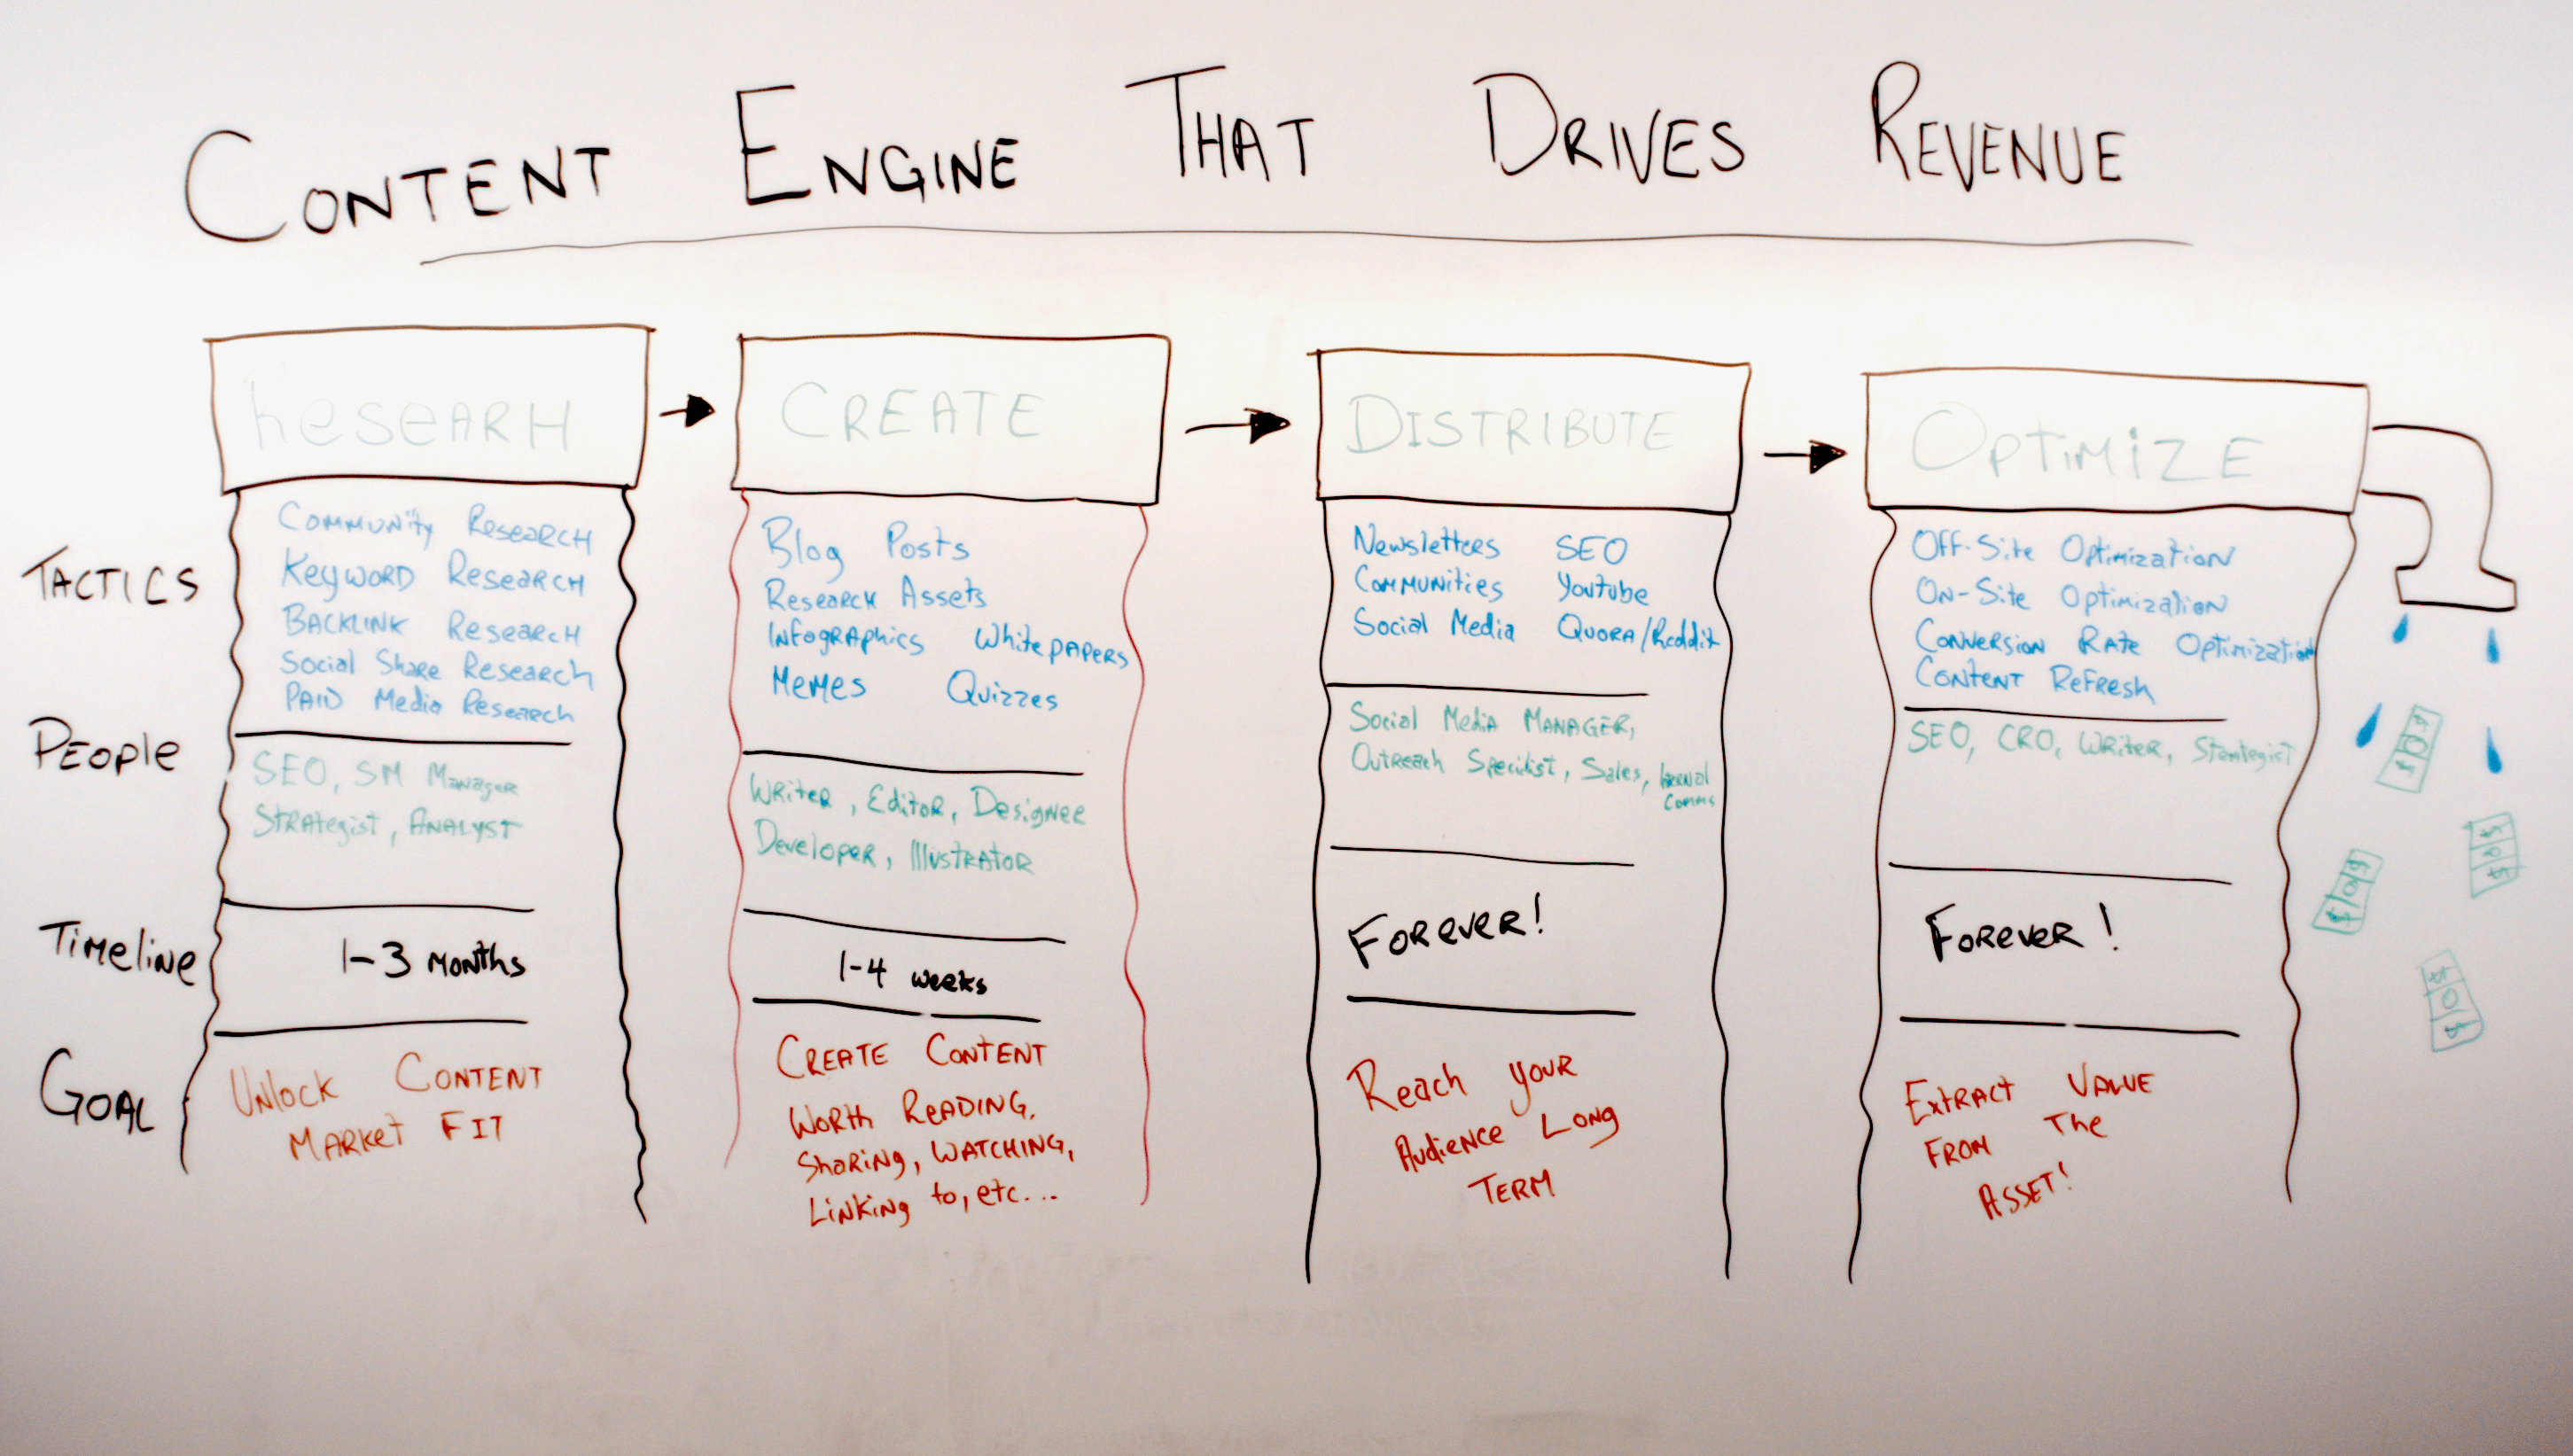 CONTENT ENGINE THAT DRIVES REVENUE
ReSEARH
CREATE
DISTRIBUTE
OPtiMiZE
TACTICS
Community Research
Keyword Research
Backlink Research
Social Share Research
Paid Media Research
Blog Posts
Research Assets
Infographics Whitepapers
Memes Quizzes
Newsletters SEO
Communities Youtube
Social Media Quora/Reddit
Off-Site Optimization
On-Site Optimization
Conversion Rate Optimization
Content Refresh
People
SEO, SM Manager
Strategist, Analyst
Writer, Editor, Designer
Developer, Illustrator
Social Media Manager,
Outreach Specilist, Sales, Internal
Comms
SEO, CRO, Writer, Strategist
Timeline
1-3 months
1-4 weeks
Forever!
Forever!
Goal
Unlock Content
Market Fit
Create Content
Worth Reading,
Sharing, Watching,
Linking to, etc...
Reach your
Audience Long
Term
Extract Value
From The
Asset!
$ 0 $
$ 0 $
$ 0 $
$ 0 $